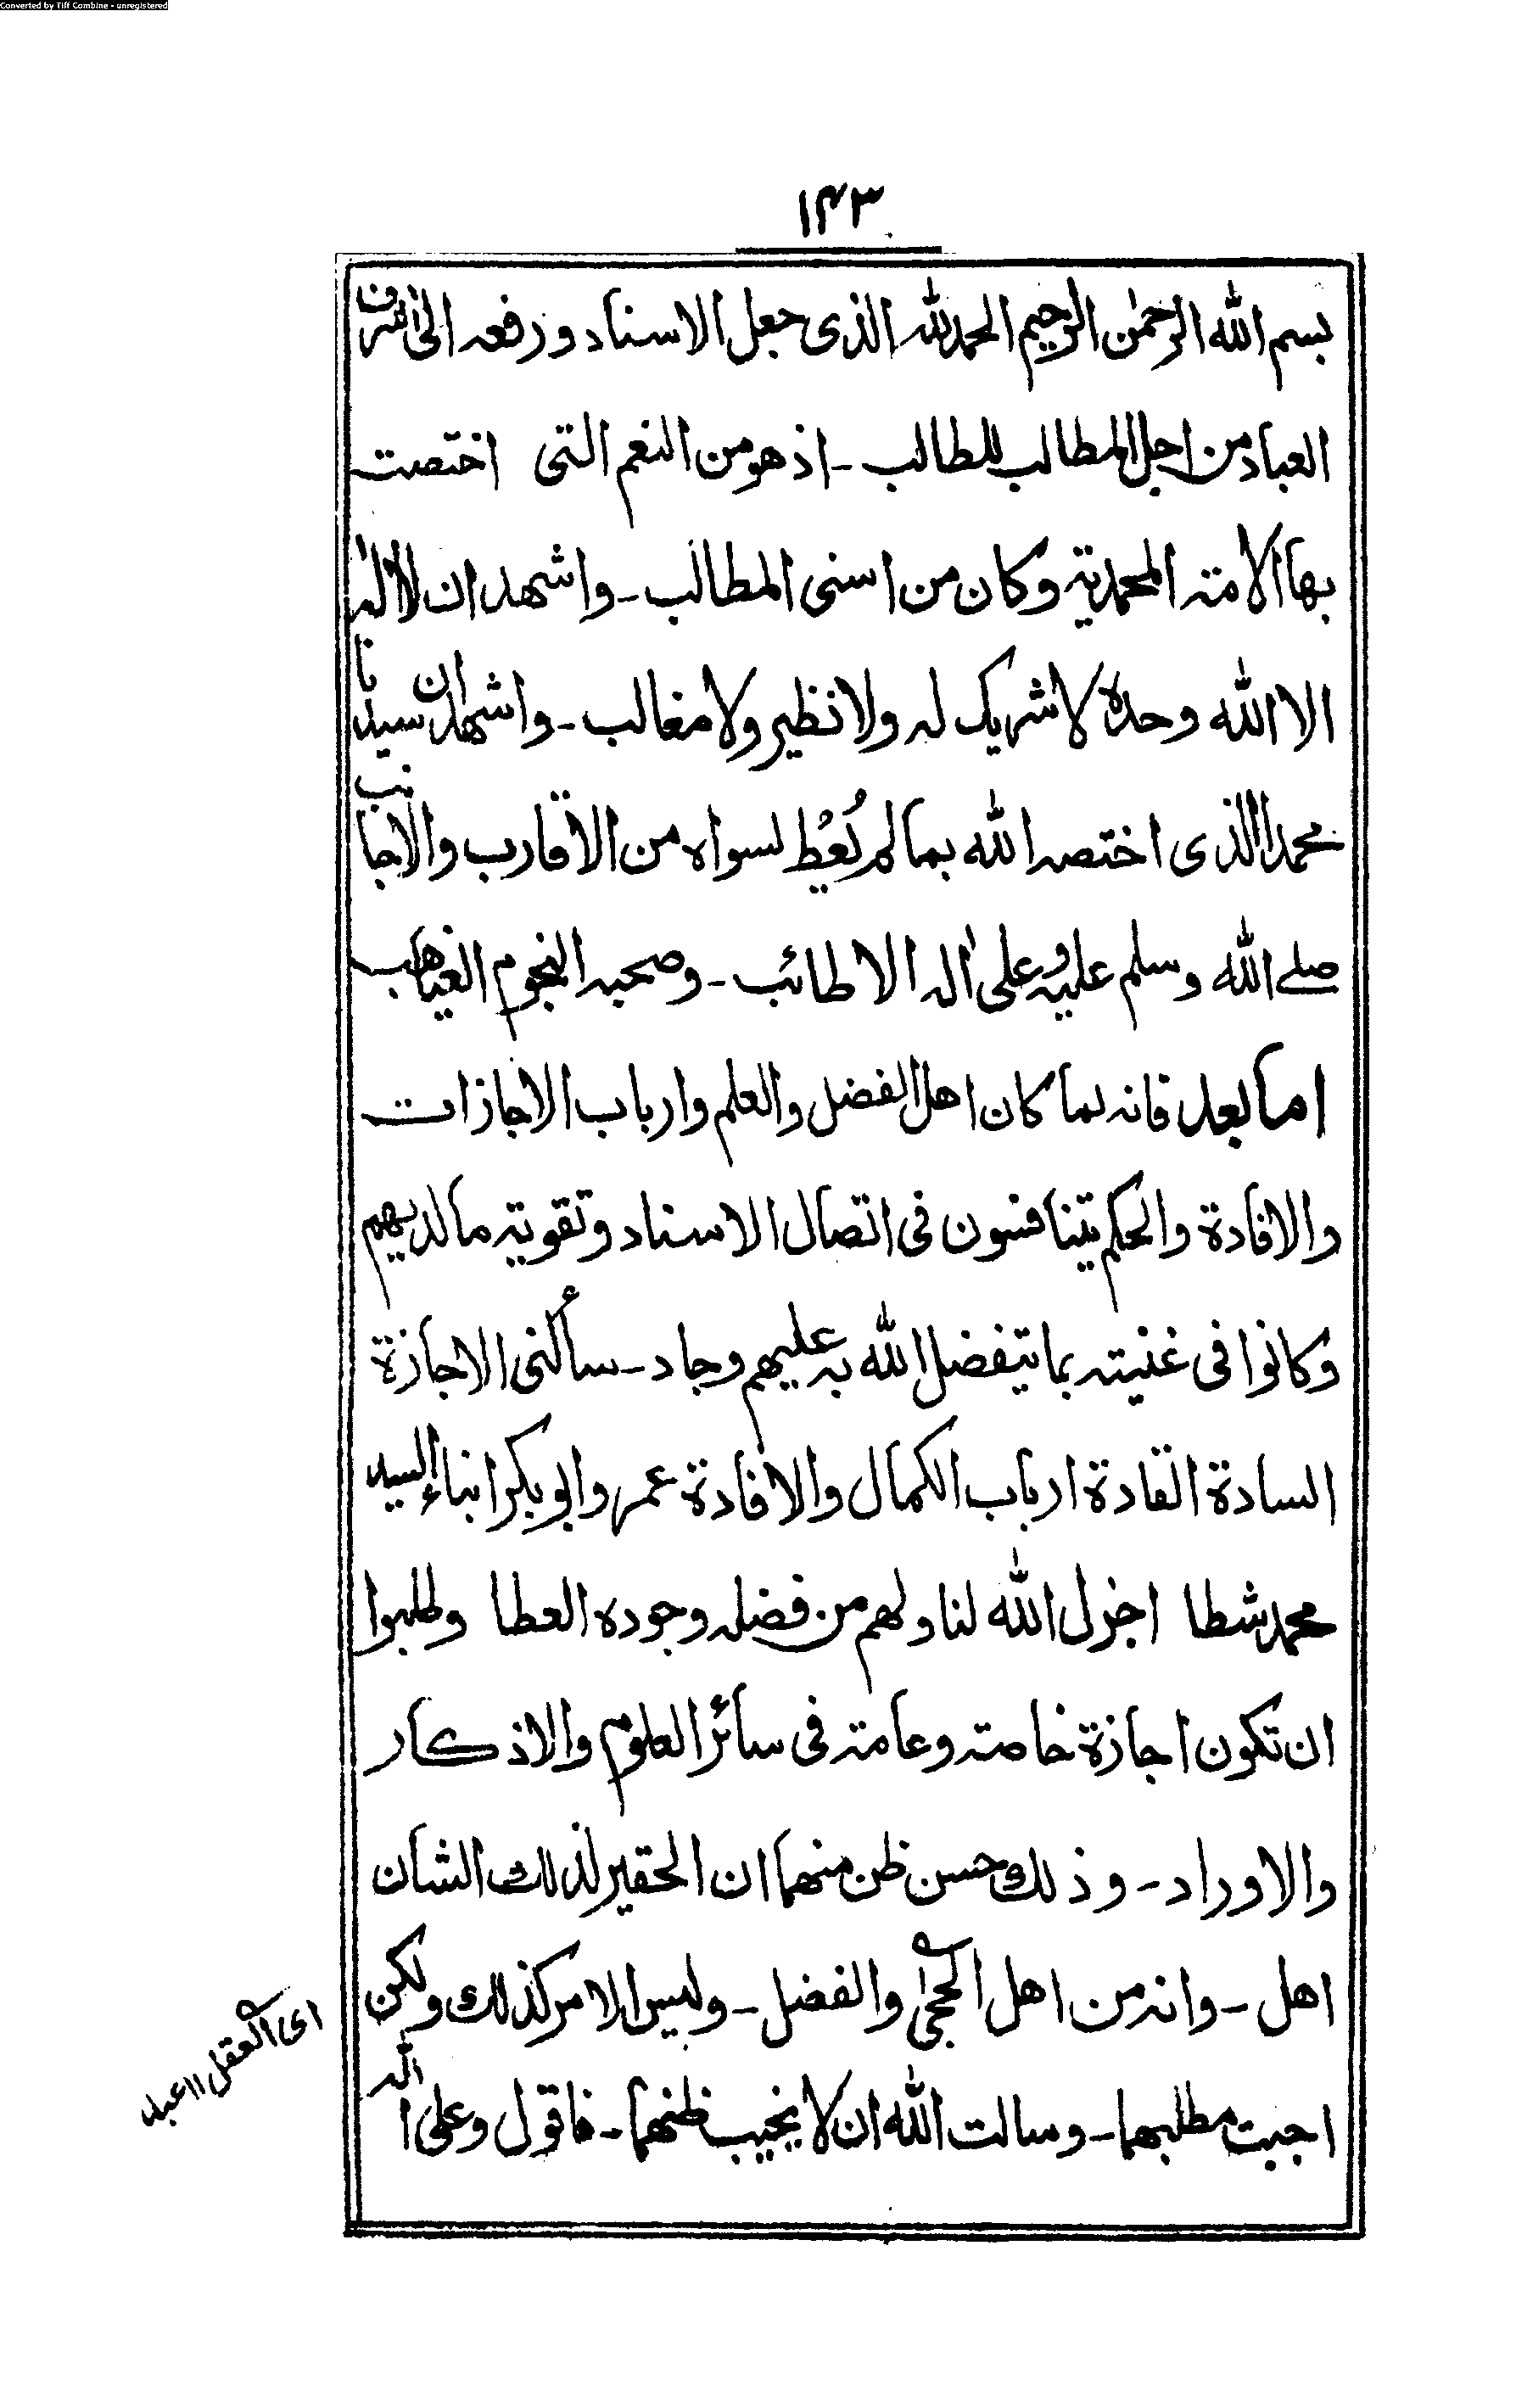 Converted by Tiff Combine - unregistered
۱۴۳
بسم الله الرحمٰن الرحيم الحمد لله الذى جعل الاسناد و رفعه الىٰ اشرف
العباد من اجل المطالب للطالب - اذ هو من النعم التى اختصت
بها الامة المحمدية وكان من اسنى المطالب - واشهد ان لا الٰه
الا الله وحده لا شريك له ولا نظير ولا مغالب - واشهد ان سيدنا
محمدا الذى اختصه الله بما لم يُعْط لسواه من الاقارب والاجانب
صلے الله وسلم عليه وعلىٰ اٰله الاطائب - وصحبه النجوم الغياهب
اما بعد فانه لما كان اهل الفضل والعلم وارباب الاجازات
والافادة والحكم يتنافسون فى اتصال الاسناد وتقوية ما لديهم
وكانوا فى غنيته بما يتفضل الله به عليهم وجاد - سألنى الاجازة
السادة القادة ارباب الكمال والافادة عمر وابو بكر ابناء السيد
محمد شطا اجزل الله لنا ولهم من فضله وجوده العطا وطلبوا
ان تكون اجازة خاصة وعامة فى سائر العلوم والاذكار
والاوراد - وذلك حسن ظن منهما ان الحقير لذلك الشان
اهل - وانه من اهل الحجىٰ والفضل - وليس الامر كذلك ولكن
اجبت مطلبهما - وسالت الله ان لا يخيب ظنهما - فاقول وعلى الله
اى العقل ۱۱ عبد